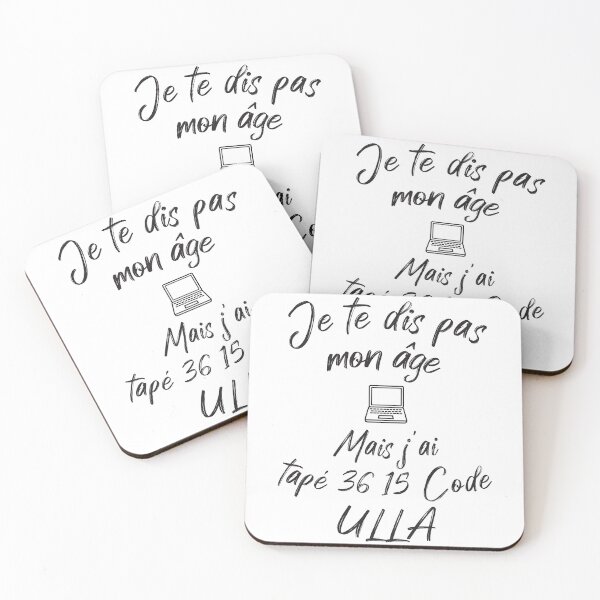 Je te dis pas
mon âge
Je te dis pas
mon âge
Mais j'ai
tapé 36 15 Code
Je te dis pas
mon âge
Mais j'ai
tapé 36 15
Je te dis pas
mon âge
Mais j'ai
tapé 36 15 Code
ULLA